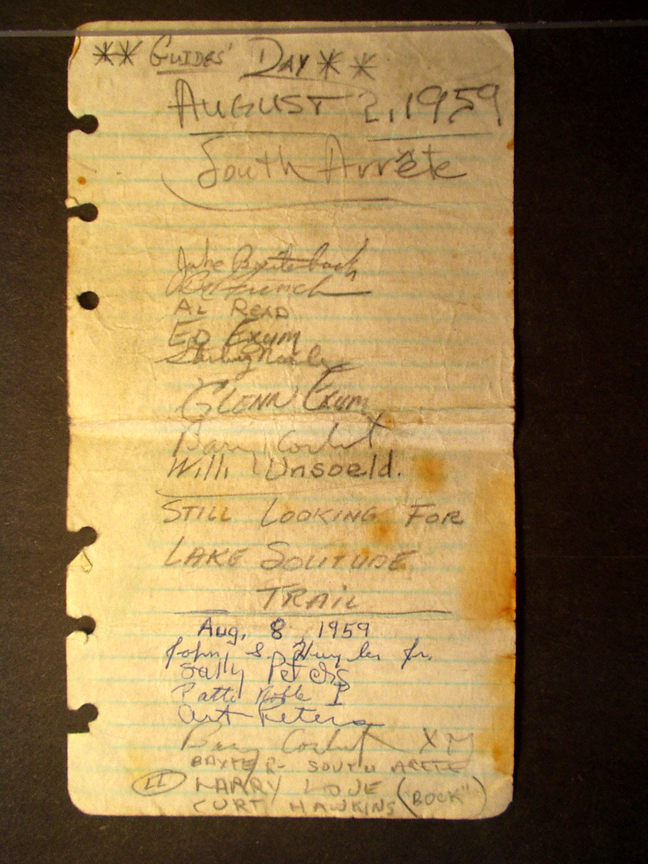 ** GUIDES' DAY **
AUGUST 2, 1959
South Arrête
Jake Breitenbach
French
AL READ
ED EXUM
Sterling Neale
GLENN EXUM
Barry Corbet
Willi Unsoeld.
STILL LOOKING FOR
LAKE SOLITUDE
TRAIL
Aug. 8, 1959
John S. Huyler Jr.
Sally Peters
Patti Noble I
Art Peters
Barry Corbet XM
BAXTER - SOUTH ARETE
II LARRY LOVE ("ROCK")
CURT HAWKINS